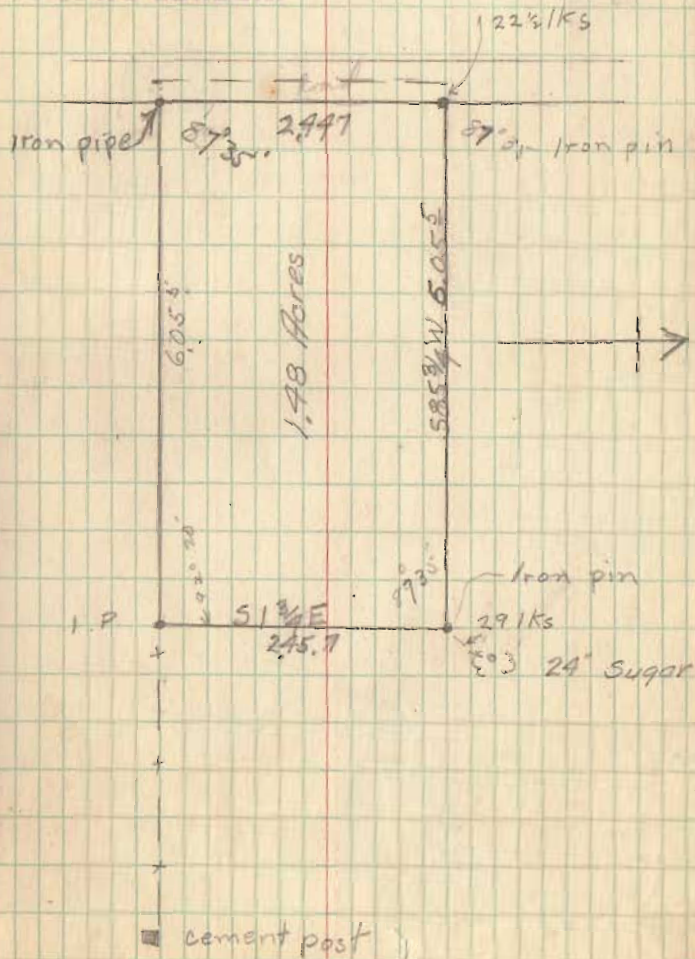 22 1/2 lks
Road
Iron pipe
2.447
Iron pin
6.05 5
1.48 Acres
S 85 3/4 W 6.05 5
92° 20'
89 30
Iron pin
I.P
S 1 3/4 E
245.7
29 lks
24" Sugar
cement post